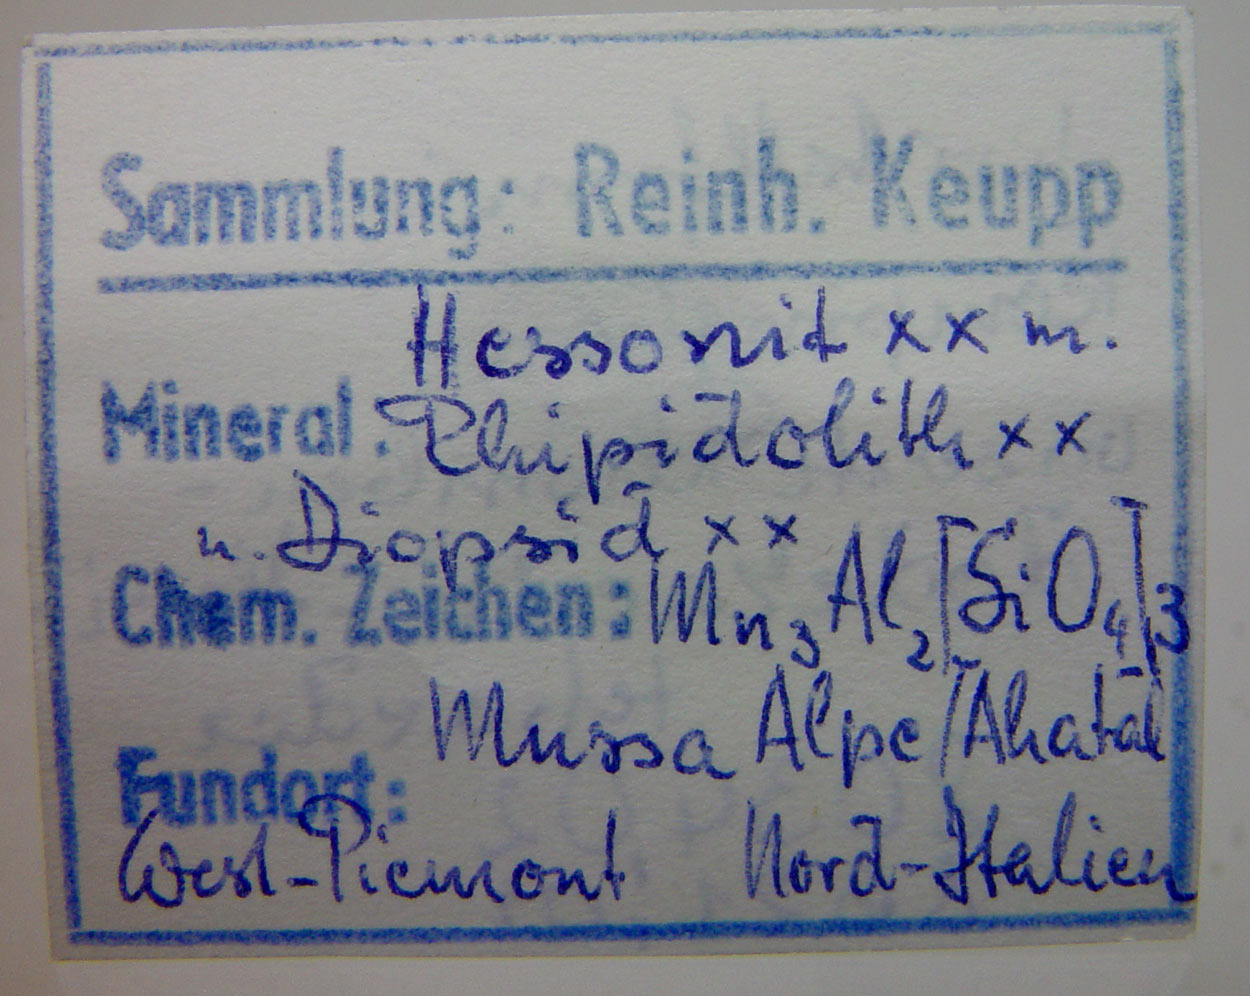 Sammlung: Reinh. Keupp
Hessonit xx m.
Mineral: Rhipidolith xx
u. Diopsid xx
Chem. Zeichen: Mn₃Al₂[SiO₄]₃
Mussa Alpe/Alatal
Fundort:
West-Piemont Nord-Italien